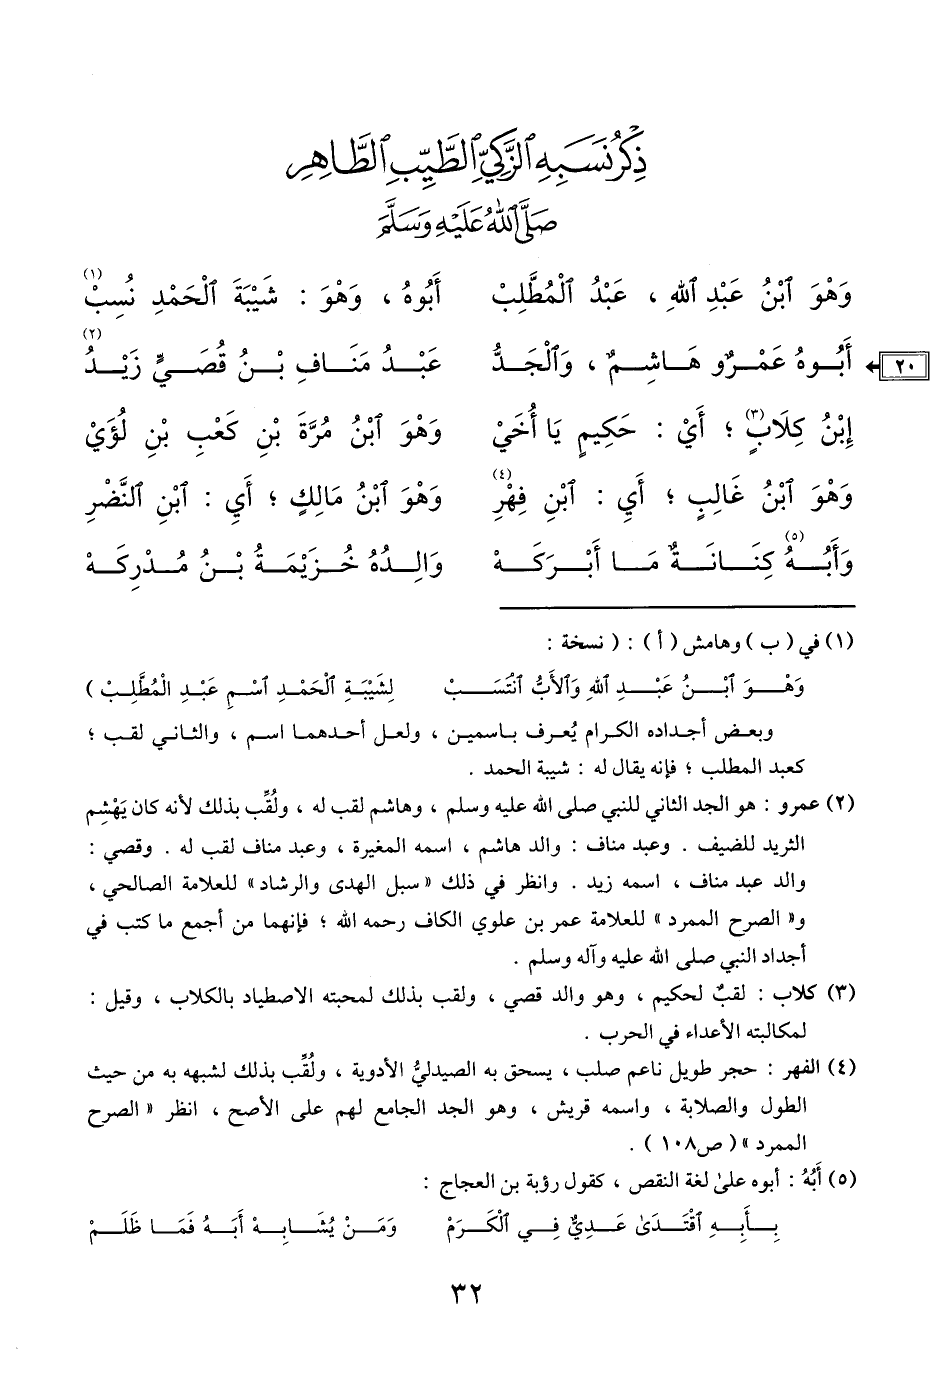 ذِكْرُ نَسَبِهِ ٱلزَّكِيِّ ٱلطَّيِّبِ ٱلطَّاهِرِ
صَلَّى ٱللهُ عَلَيْهِ وَسَلَّمَ
وَهْوَ ٱبْنُ عَبْدِ ٱللهِ ، عَبْدُ ٱلْمُطَّلِبْ أَبُوهُ ، وَهْوَ : شَيْبَةَ ٱلْحَمْدِ نُسِبْ (١)
٢٠ أَبُوهُ عَمْرٌو هَاشِمٌ ، وَٱلْجَدُّ عَبْدُ مَنَافِ بْنُ قُصَيٍّ زَيْدُ (٢)
إِبْنُ كِلَابٍ (٣) ؛ أَيْ : حَكِيمٍ يَا أُخَيْ وَهْوَ ٱبْنُ مُرَّةَ بْنِ كَعْبِ بْنِ لُؤَيْ
وَهْوَ ٱبْنُ غَالِبٍ ؛ أَيِ : ٱبْنِ فِهْرِ (٤) وَهْوَ ٱبْنُ مَالِكٍ ؛ أَيِ : ٱبْنِ ٱلنَّضْرِ
وَأَبُهُ (٥) كِنَانَةٌ مَا أَبْرَكَهْ وَالِدُهُ خُزَيْمَةُ بْنُ مُدْرِكَهْ
(١) في ( ب ) وهامش ( أ ) : ( نسخة :
وَهْوَ ٱبْنُ عَبْدِ ٱللهِ وَٱلأَبُّ ٱنْتَسَبْ لِشَيْبَةِ ٱلْحَمْدِ ٱسْمِ عَبْدِ ٱلْمُطَّلِبْ )
وبعض أجداده الكرام يُعرف باسمين ، ولعل أحدهما اسم ، والثاني لقب ؛
كعبد المطلب ؛ فإنه يقال له : شيبة الحمد .
(٢) عمرو : هو الجد الثاني للنبي صلى الله عليه وسلم ، وهاشم لقب له ، ولُقِّب بذلك لأنه كان يَهْشِم
الثريد للضيف . وعبد مناف : والد هاشم ، اسمه المغيرة ، وعبد مناف لقب له . وقصي :
والد عبد مناف ، اسمه زيد . وانظر في ذلك « سبل الهدى والرشاد » للعلامة الصالحي ،
و« الصرح الممرد » للعلامة عمر بن علوي الكاف رحمه الله ؛ فإنهما من أجمع ما كتب في
أجداد النبي صلى الله عليه وآله وسلم .
(٣) كلاب : لقبٌ لحكيم ، وهو والد قصي ، ولقب بذلك لمحبته الاصطياد بالكلاب ، وقيل :
لمكالبته الأعداء في الحرب .
(٤) الفهر : حجر طويل ناعم صلب ، يسحق به الصيدليُّ الأدوية ، ولُقِّب بذلك لشبهه به من حيث
الطول والصلابة ، واسمه قريش ، وهو الجد الجامع لهم على الأصح ، انظر « الصرح
الممرد » ( ص١٠٨ ) .
(٥) أَبُهُ : أبوه علىٰ لغة النقص ، كقول رؤبة بن العجاج :
بِأَبِهِ ٱقْتَدَىٰ عَدِيٌّ فِي ٱلْكَرَمْ وَمَنْ يُشَابِهْ أَبَهُ فَمَا ظَلَمْ
٣٢